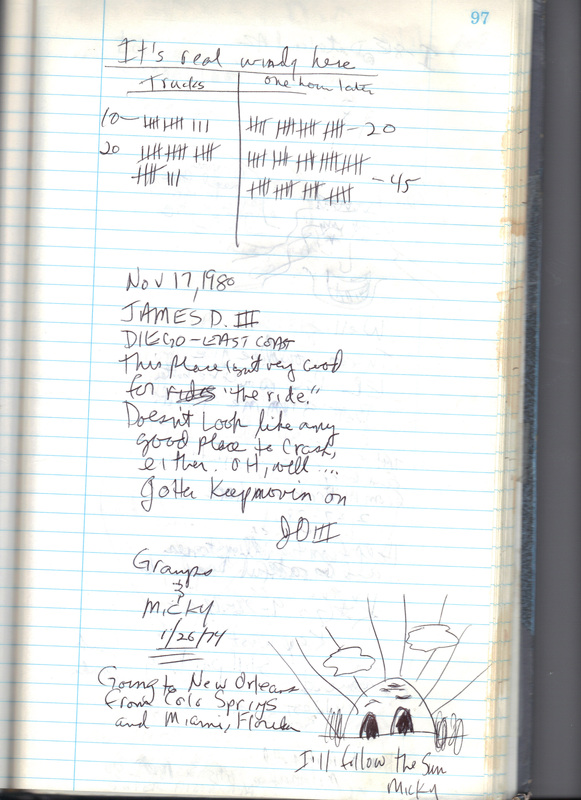 97
It's real windy here
Trucks
one hour later
10-
- 20
20
- 45
Nov 17, 1980
JAMES D. III
DIEGO-EAST COAST
this place isn't very good
for rides "the ride."
Doesn't Look like any
good place to Crash,
either. OH, well ....
Gotta Keep movin on
JD III
Gramps
&
Micky
1/26/74
Going to New Orleans
from Colo Springs
and Miami, Florida
I'll follow the Sun
Micky